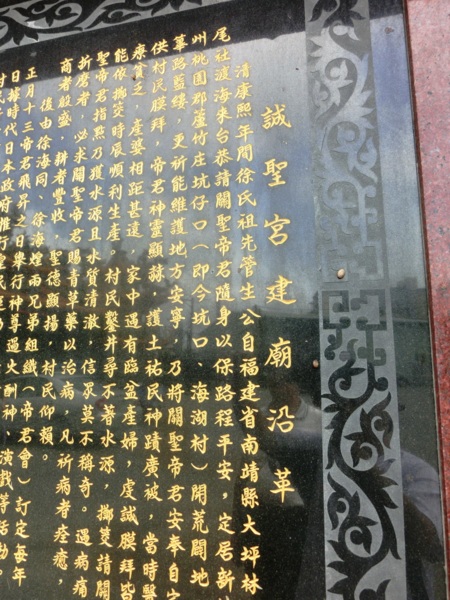 誠聖宮建廟沿革
清康熙年間徐氏祖先管生公自福建省南靖縣大坪林
尾社渡海來台恭請關聖帝君隨身以保路程平安，定居新
州桃園郡蘆竹庄坑仔口（即今坑口、海湖村）開荒闢地
篳路藍縷，更祈能維護地方安寧，乃將關聖帝君安奉自宅
供村民膜拜，帝君神靈顯赫，護土祐民神蹟廣被，當時醫
療貧乏，產婆相距甚遠，家中遇有臨盆產婦，虔誠膜拜皆
能依擲筊時辰順利生產，村民鑿井尋不著水源，擲筊請關
聖帝君指點乃獲水源且水質清澈，信眾莫不稱奇。遇病痛
折磨者，必求關聖帝君賜青草藥以治病，凡祈病者痊癒，
商者殷盛，耕者豐收，聖德顯揚，村民仰賴。
後由徐海同、徐海煌兩兄弟組織（帝君會）訂定每年
正月十三帝君飛昇之日舉行神尊過
日據時代日本政府推行皇民
酬神演戲等活動。